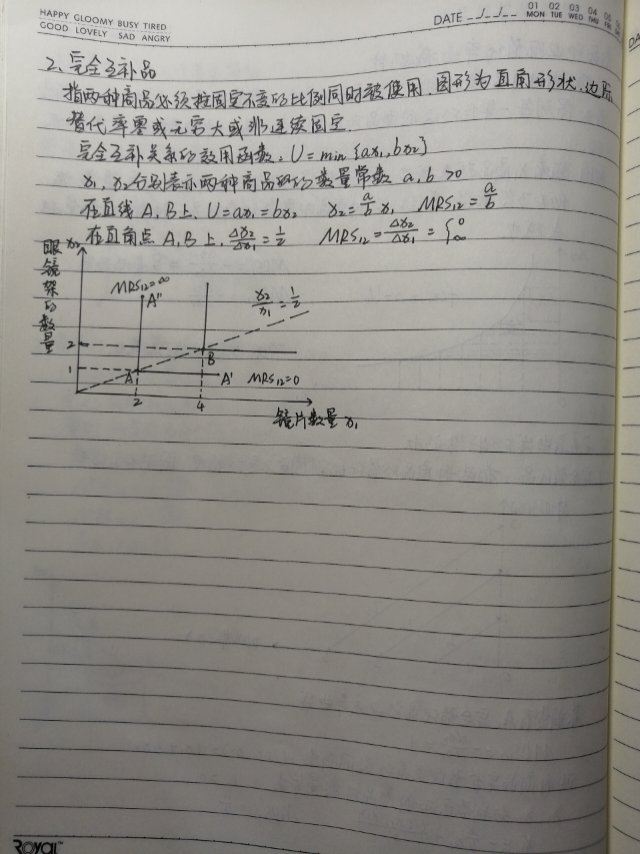 HAPPY GLOOMY BUSY TIRED
GOOD LOVELY SAD ANGRY
DATE / /
01 02 03 04 05
MON TUE WED THU FRI
2、完全互补品
指两种商品必须按固定不变的比例同时被使用.图形为直角形状.边际
替代率零或无穷大或非连续固定.
完全互补关系的效用函数, U=min{ax₁,bx₂}
x₁,x₂分别表示两种商品的数量常数 a,b >0
在直线A,B上, U=ax₁=bx₂ x₂=a/b x₁ MRS₁₂=a/b
在直角点A,B上, Δx₂/Δx₁=1/2 MRS₁₂=Δx₂/Δx₁={0 ∞
眼镜架的数量 x₂
MRS₁₂=∞
A"
x₂/x₁=1/2
2
B
1
A
A'
MRS₁₂=0
2
4
镜片数量 x₁
ROYAL